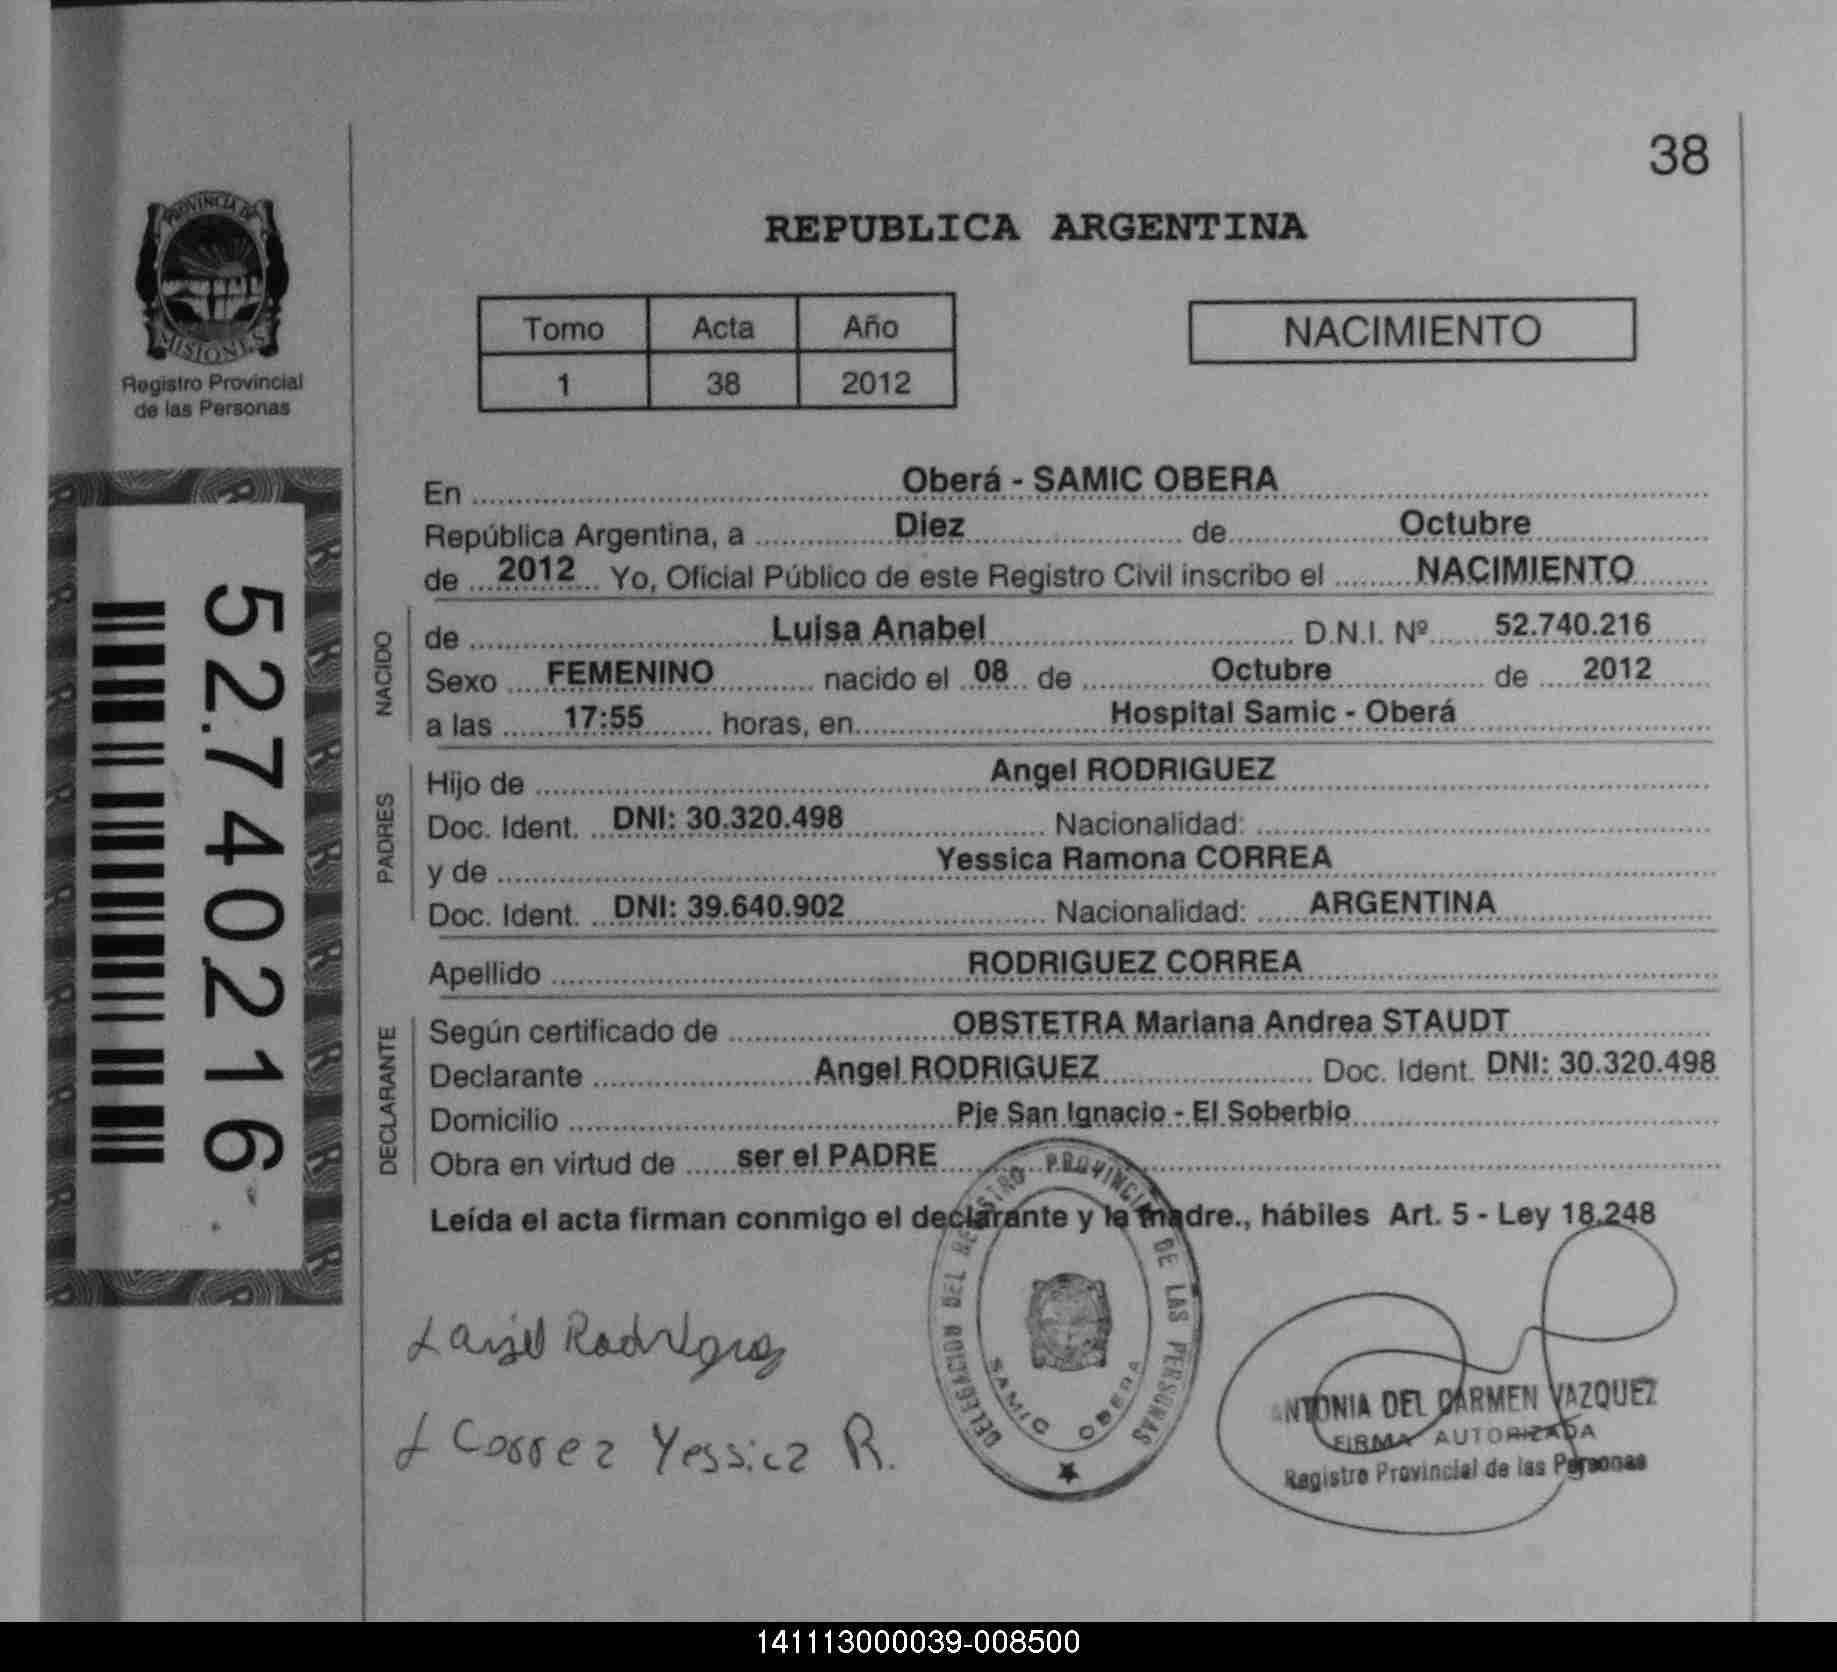 38
PROVINCIA DE
MISIONES
Registro Provincial
de las Personas
REPUBLICA ARGENTINA
Tomo Acta Año
1 38 2012
NACIMIENTO
52.740216
En Oberá - SAMIC OBERA
República Argentina, a Diez de Octubre
de 2012 Yo, Oficial Público de este Registro Civil inscribo el NACIMIENTO
NACIDO
de Luisa Anabel D.N.I. Nº 52.740.216
Sexo FEMENINO nacido el 08 de Octubre de 2012
a las 17:55 horas, en Hospital Samic - Oberá
PADRES
Hijo de Angel RODRIGUEZ
Doc. Ident. DNI: 30.320.498 Nacionalidad:
y de Yessica Ramona CORREA
Doc. Ident. DNI: 39.640.902 Nacionalidad: ARGENTINA
Apellido RODRIGUEZ CORREA
DECLARANTE
Según certificado de OBSTETRA Mariana Andrea STAUDT
Declarante Angel RODRIGUEZ Doc. Ident. DNI: 30.320.498
Domicilio Pje San Ignacio - El Soberbio
Obra en virtud de ser el PADRE
Leída el acta firman conmigo el declarante y la madre., hábiles Art. 5 - Ley 18.248
DELEGACION DEL REGISTRO PROVINCIAL DE LAS PERSONAS
SAMIC OBERA
Correa Yessica R.
ANTONIA DEL CARMEN VAZQUEZ
FIRMA AUTORIZADA
Registro Provincial de las Personas
141113000039-008500